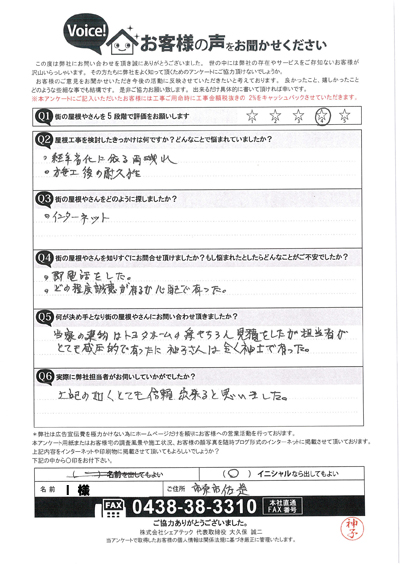 Voice!
お客様の声をお聞かせください
この度は弊社にお問い合わせ頂き誠にありがとうございました。世の中には弊社の存在やサービスをご存知ないお客様が
沢山いらっしゃいます。その方たちに弊社をよく知って頂くためのアンケートにご協力頂けないでしょうか。
お客様のご意見をお聞かせいただき今後の活動に反映させていただきたいと考えております。良かったこと、嬉しかったこと
どのような些細な事でも結構です。是非ご協力お願い致します。出来るだけ具体的に書いて頂ければ幸いです。
※本アンケートにご記入いただいたお客様には工事ご用命時に工事金額税抜きの 2%をキャッシュバックさせていただきます。
Q1 街の屋根やさんを5段階で評価をお願いします ☆ ☆ ☆ ☆ ☆
Q2 屋根工事を検討したきっかけは何ですか？どんなことで悩まれていましたか？
・経年劣化に依る雨漏れ
・施工後の耐久性
Q3 街の屋根やさんをどのように探しましたか？
・インターネット
Q4 街の屋根やさんを知りすぐにお問合せ頂けましたか？もし悩まれたとしたらどんなことがご不安でしたか？
・即電話をした。
・どの程度知識が有るか心配で有った。
Q5 何が決め手となり街の屋根やさんにお問い合わせ頂きましたか？
当家の建物はトヨタホーム
見積をしたが担当者が
とても威圧的で有ったに神子さんは全く紳士で有った。
Q6 実際に弊社担当者がお伺いしていかがでしたか？
上記の如くとても信頼出来ると思いました。
※弊社は広告宣伝費を極力かけない為にホームページだけを頼りにお客様への営業活動を行っております。
本アンケート用紙またはお客様宅の調査風景や施工状況、お客様の顔写真を随時ブログ形式のインターネットに掲載させて頂いております。
上記内容をインターネットや印刷物に掲載させて頂いてもよろしいでしょうか？
下記の中から〇印をお付け下さい。
( ー ) 名前を出してもよい ( 〇 ) イニシャルなら出してもよい
名前 I 様 ご住所 市原市
FAX 0438-38-3310 本社直通 FAX番号
ご協力ありがとうございました。
株式会社シェアテック 代表取締役 大久保 誠二
当アンケートで取得したお客様の個人情報は関係法規に基づき厳正に管理いたします。
神子